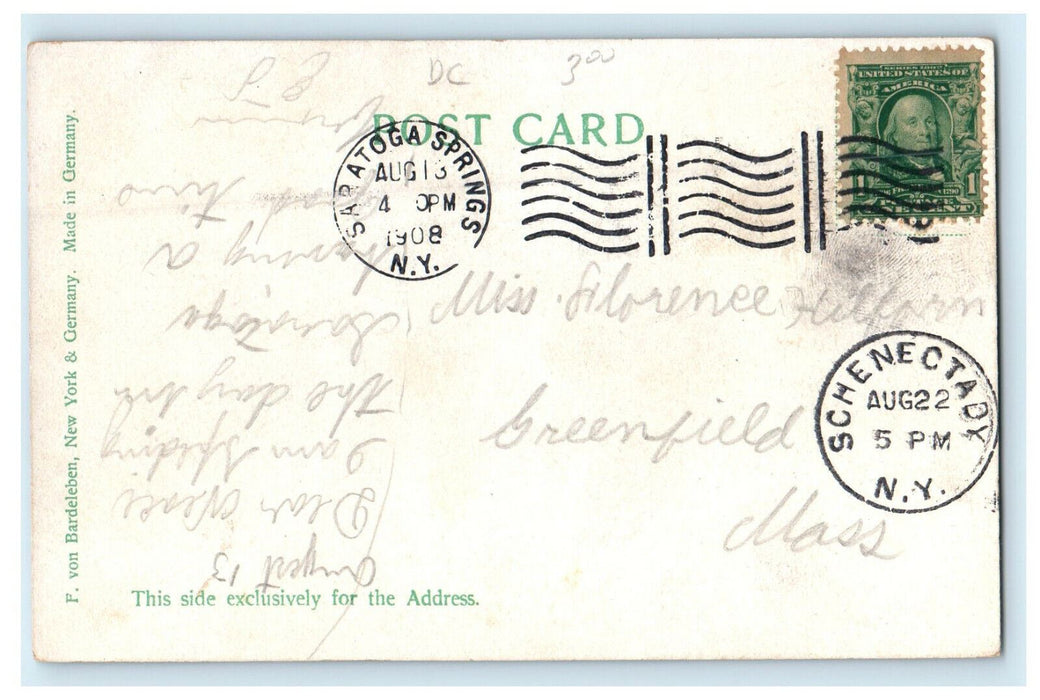 DC 3⁰⁰
SERIES 1902
UNITED STATES OF
AMERICA
POST CARD
SARATOGA SPRINGS
AUG 13
4 PM
1908
N.Y.
Miss. Florence
Greenfield
Mass
SCHENECTADY
AUG 22
5 PM
N.Y.
August 13
Dear
I am
the day in
Saratoga
having a
good time
This side exclusively for the Address.
F. von Bardeleben, New York & Germany. Made in Germany.